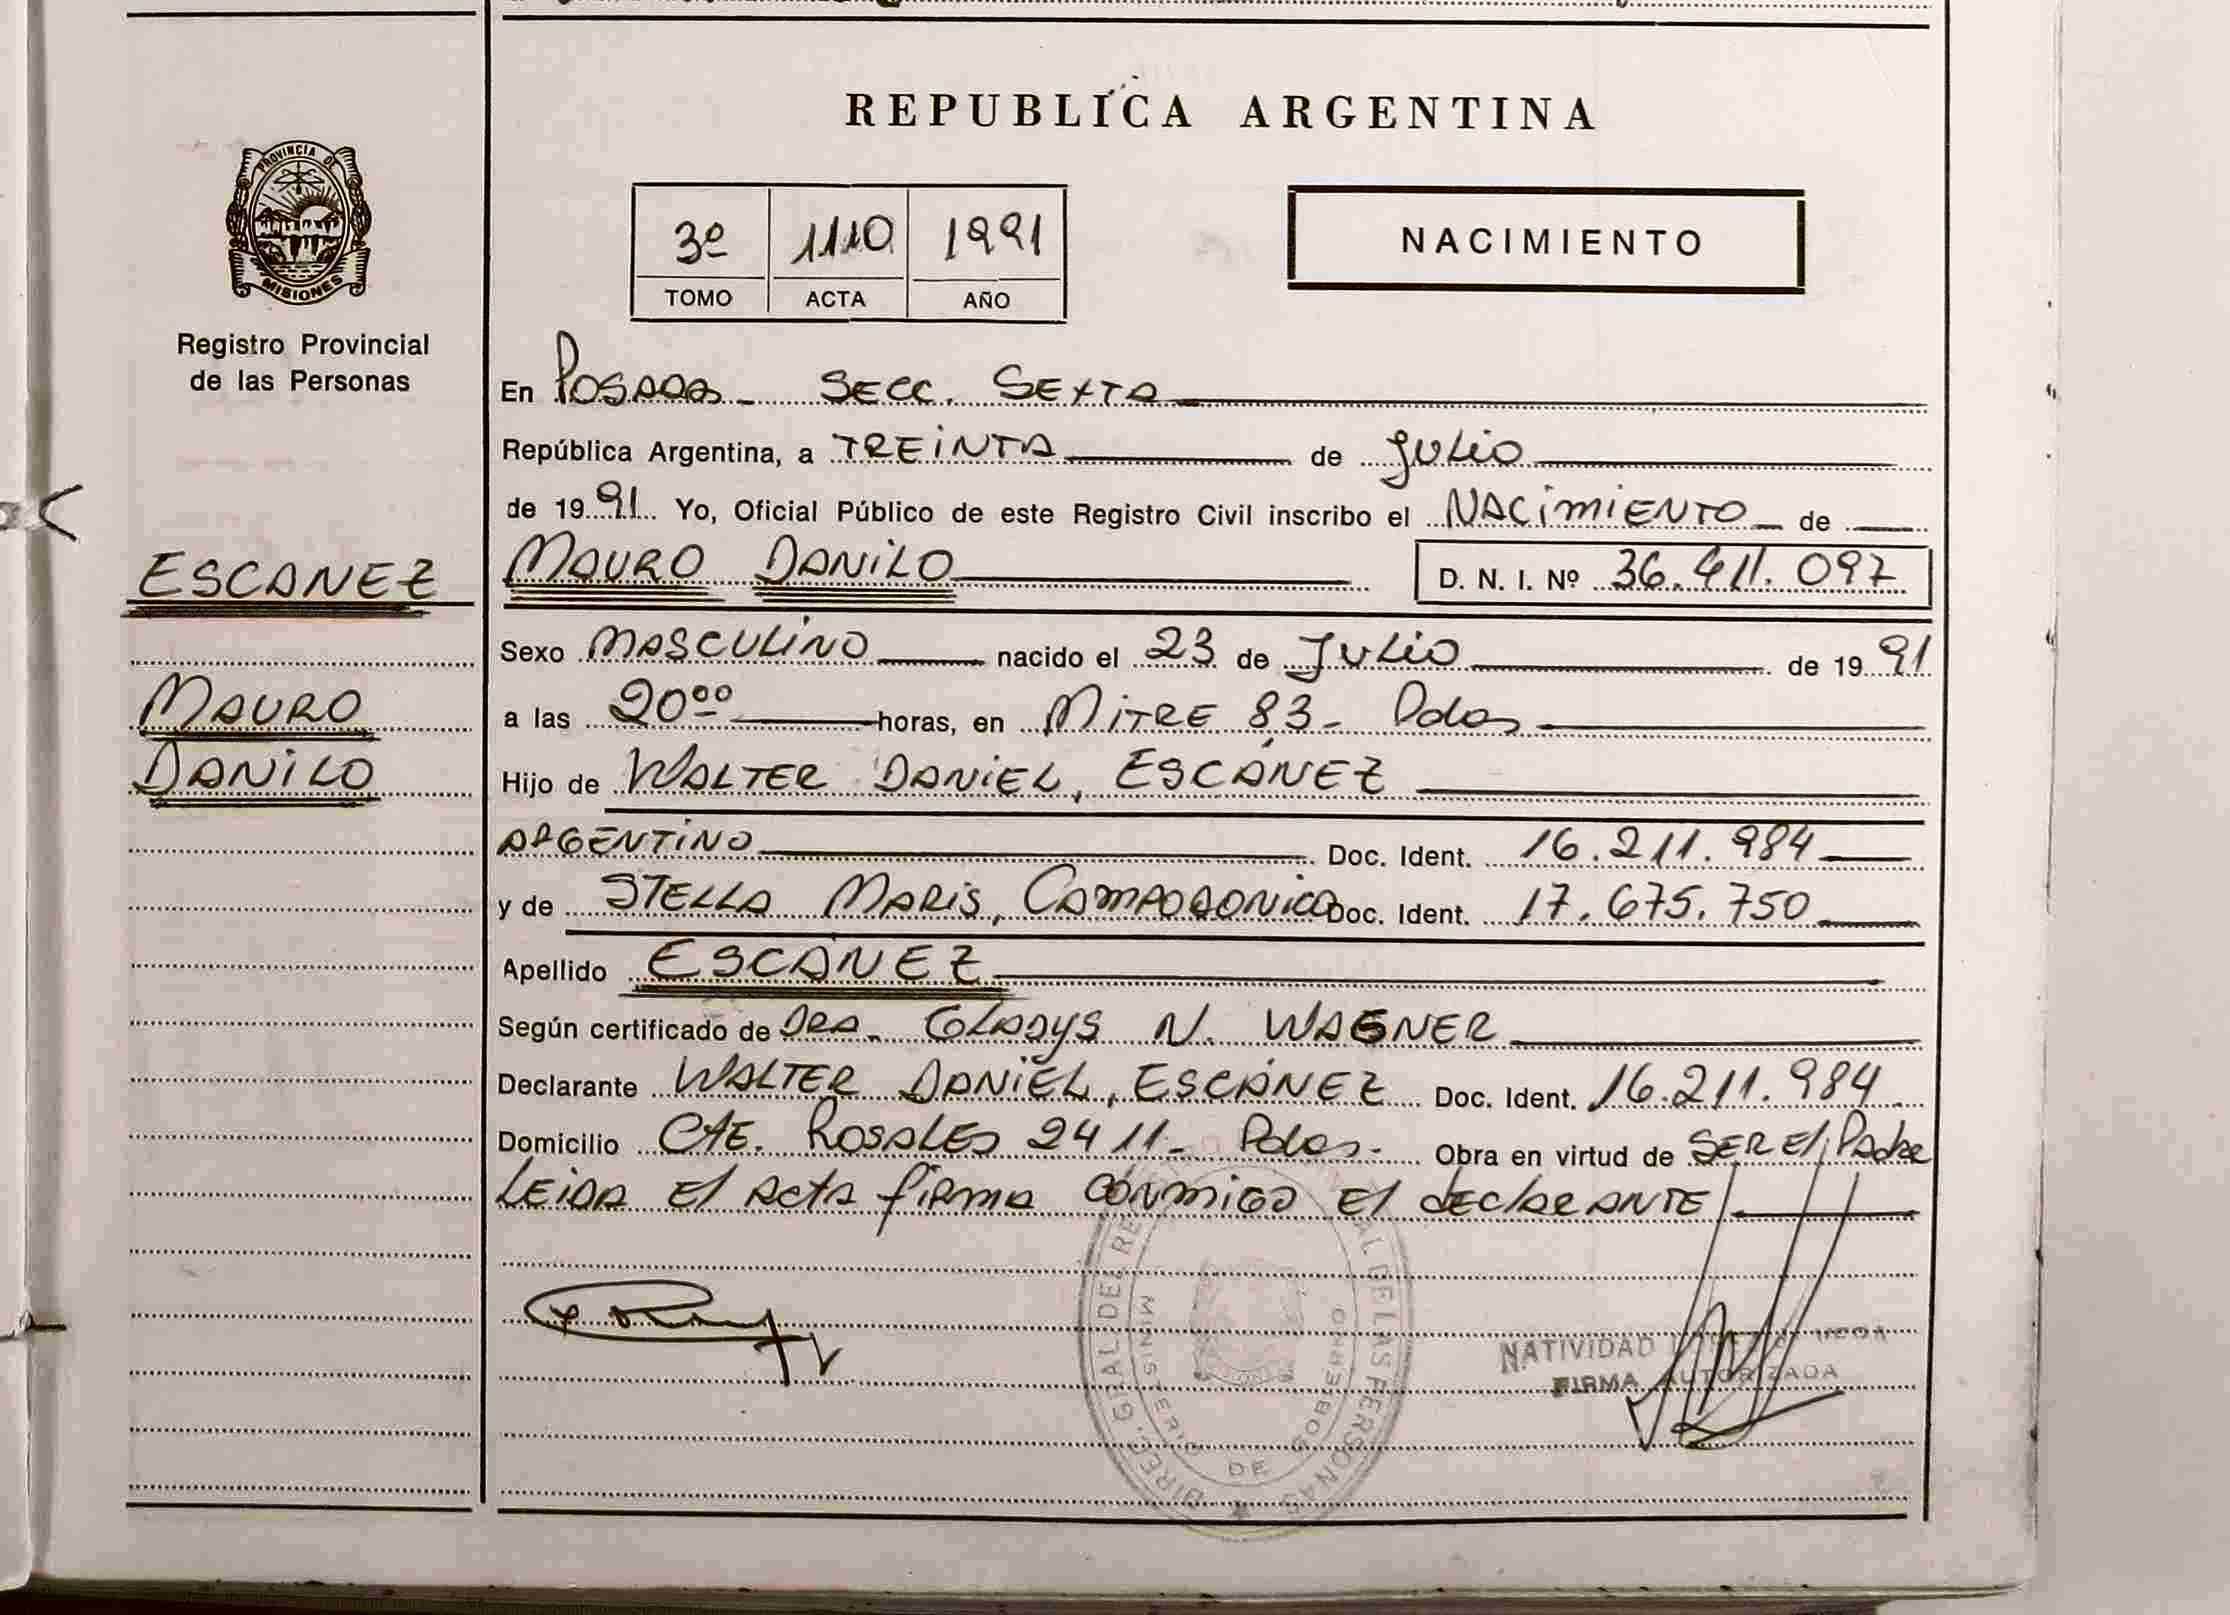 REPUBLICA ARGENTINA
PROVINCIA DE
MISIONES
Registro Provincial
de las Personas
3º 1110 1991
TOMO ACTA AÑO
NACIMIENTO
En Posadas - Secc. Sexta
República Argentina, a TREINTA de Julio
de 1991 Yo, Oficial Público de este Registro Civil inscribo el NACIMIENTO de
ESCANEZ
MAURO DANILO D. N. I. Nº 36.411.097
Sexo MASCULINO nacido el 23 de Julio de 1991
MAURO
a las 20ºº horas, en MITRE 83 - Pdas
DANILO
Hijo de WALTER DANIEL, ESCANEZ
ARGENTINO Doc. Ident. 16.211.984
y de STELLA MARIS, CAMPODONICO Doc. Ident. 17.675.750
Apellido ESCANEZ
Según certificado de DRA. GLADYS N. WAGNER
Declarante WALTER DANIEL, ESCANEZ Doc. Ident. 16.211.984
Domicilio CAE. ROSALES 2411 - Pdas - Obra en virtud de SER El Padre
LEIDA El Acta firma conmigo El declarANTE
DIRE. GRAL DEL RE AL DE LAS PERSONAS
MINISTERIO DE GOBIERNO
NATIVIDAD
FIRMA AUTORIZADA